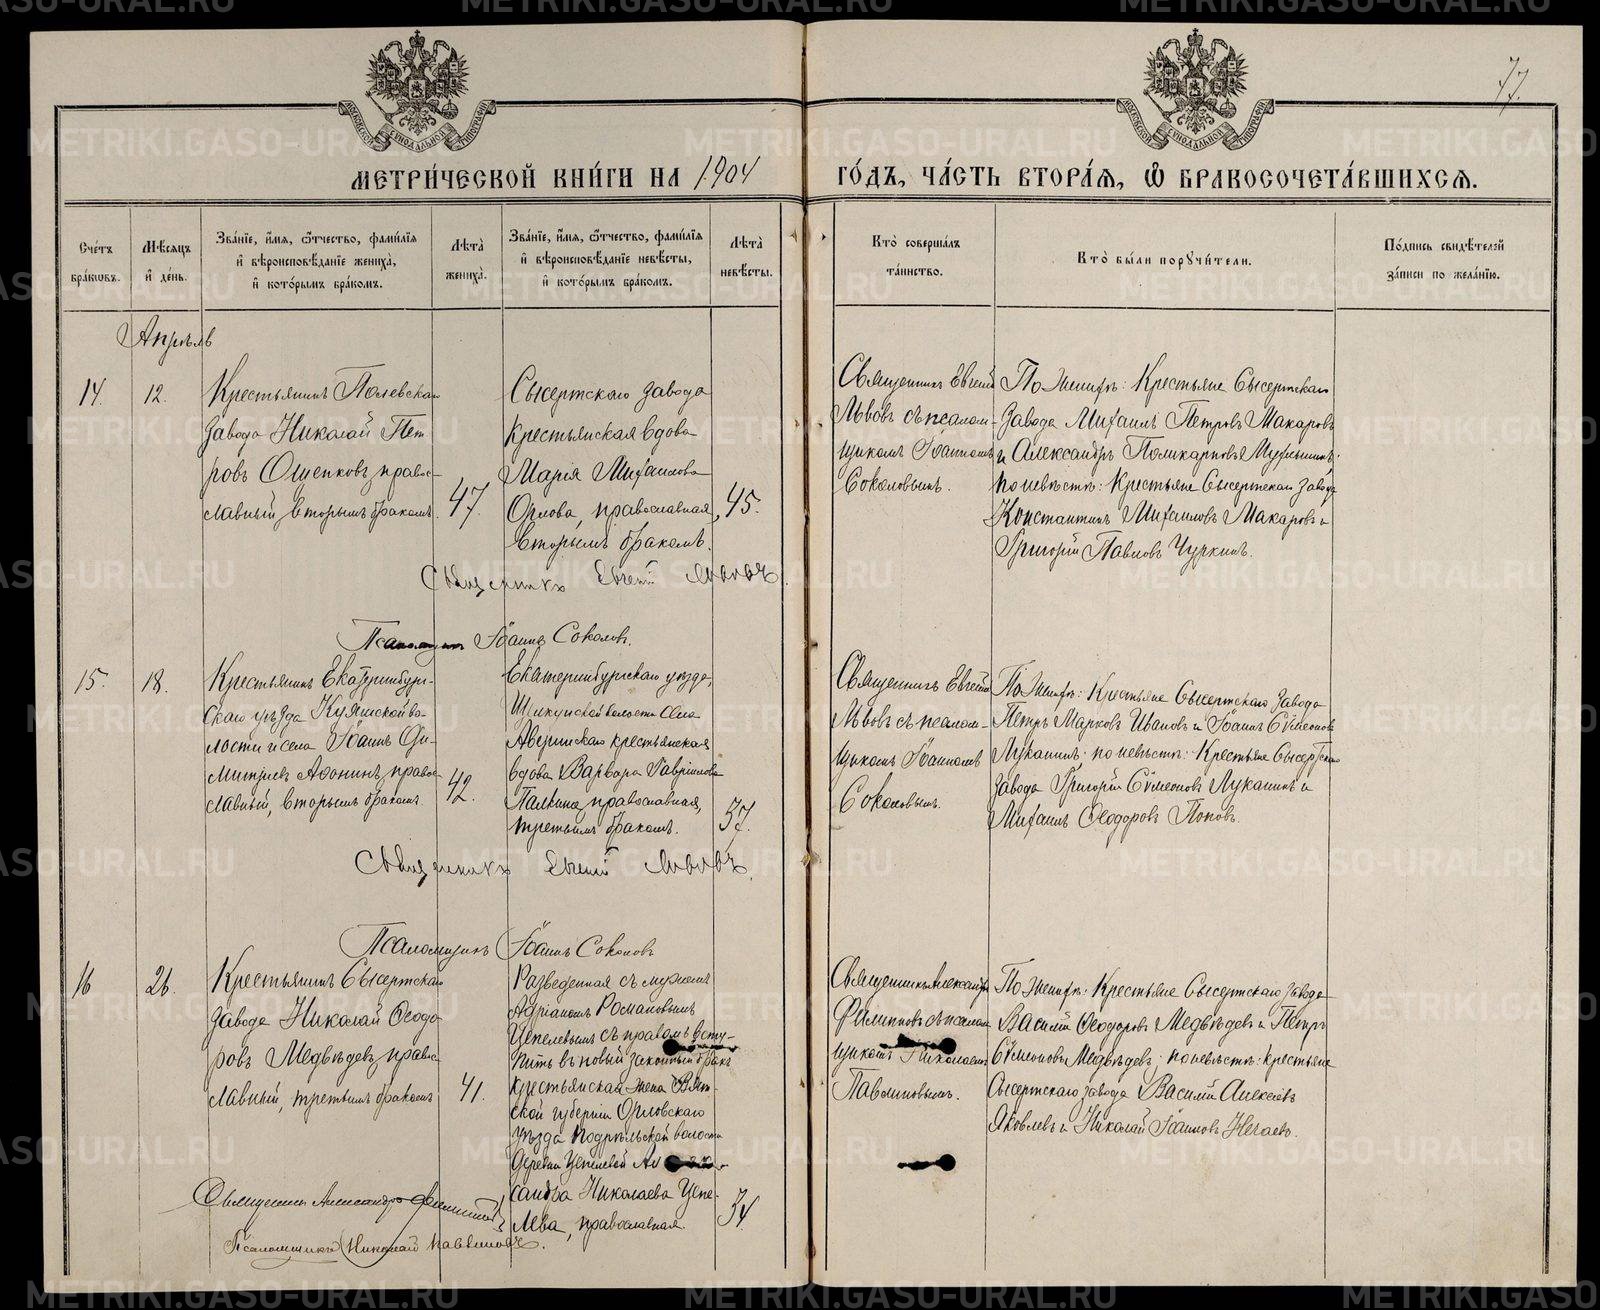 77.
МЕТРИ́ЧЕСКОЙ КНИ́ГИ НА 1904 ГО́ДЪ, ЧА́СТЬ ВТОРА́Я, Ѽ БРАКОСОЧЕТА́ВШИХСЯ.
Сче́тъ бра́кωвъ.
Мѣ́сяцъ и҆ де́нь.
Зва́нїе, и҆́мя, ѻ҆́тчество, фами́лїя и҆ вѣроисповѣ́данїе жениха̀, и҆ кото́рымъ бра́комъ.
Лѣта̀ жениха̀.
Зва́нїе, и҆́мя, ѻ҆́тчество, фами́лїя и҆ вѣроисповѣ́данїе невѣ́сты, и҆ кото́рымъ бра́комъ.
Лѣта̀ невѣ́сты.
Кто̀ соверша́лъ та́инство.
Кто̀ бы́ли порꙋчи́тели.
По́дпись свидѣ́телэй за́писи по жела́нїю.
Апрѣль
14.
12.
Крестьянинъ Полевскаго
завода Николай Пет
ровъ Ощепковъ, правос-
лавный, вторымъ бракомъ.
47.
Сысертскаго завода
крестьянская вдова
Марія Михаилова
Орлова, православная,
вторымъ бракомъ.
45.
Священникъ Евгеній
Львовъ съ псалом-
щикомъ Іоанномъ
Соколовымъ.
По женихѣ: Крестьяне Сысертскаго
завода Михаилъ Петровъ Макаровъ
и Александръ Поликарповъ
по невѣстѣ: Крестьяне Сысертскаго завода
Константинъ Михаиловъ Макаровъ и
Григорій Павловъ Чуркинъ.
Священникъ Евгеній Львовъ.
Псаломщикъ Іоаннъ Соколовъ.
15.
18.
Крестьянинъ Екатеринбург-
скаго уѣзда Куяшской во-
лости и села Іоаннъ Ди-
митріевъ Афонинъ, право
славный, вторымъ бракомъ.
42.
Екатеринбургскаго уѣзда,
Щелкунской волости села
Аверинскаго крестьянская
вдова Варвара Гавріилова
Палкина, православная,
третьимъ бракомъ.
37.
Священникъ Евгеній
Львовъ съ псалом-
щикомъ Іоанномъ
Соколовымъ.
По женихѣ: Крестьяне Сысертскаго завода
Петръ Марковъ Ивановъ и Іоаннъ Сѵмеоновъ
Луканинъ; по невѣстѣ: Крестьяне Сысертскаго
завода Григорій Сѵмеоновъ Луканинъ и
Михаилъ Ѳеодоровъ Поповъ.
Священникъ Евгеній Львовъ.
Псаломщикъ Іоаннъ Соколовъ
16
26.
Крестьянинъ Сысертскаго
завода Николай Ѳеодо
ровъ Медвѣдевъ, правос-
лавный, третьимъ бракомъ
41.
Разведенная съ мужемъ
Адріаномъ Романовымъ
Цепелевымъ съ правомъ всту-
пить въ новый законный бракъ
крестьянская жена Вят-
ской губерніи Орловскаго
уѣзда Подрѣльской волости
деревни Цепелевой Але
сандра Николаева Цепе-
лева, православная.
34.
Священникъ Александръ
Филипповъ съ псалом
щикомъ Николаемъ
Павлиновымъ.
По женихѣ: Крестьяне Сысертскаго завода
Василій Ѳеодоровъ Медвѣдевъ и Петръ
Сѵмеоновъ Медвѣдевъ; по невѣстѣ: крестьяне
Сысертскаго завода Василій Алексіевъ
Яковлевъ и Николай Іоанновъ Нечаевъ.
Священникъ Александръ Филипповъ
Псаломщикъ Николай Павлиновъ.
METRIKI.GASO-URAL.RU